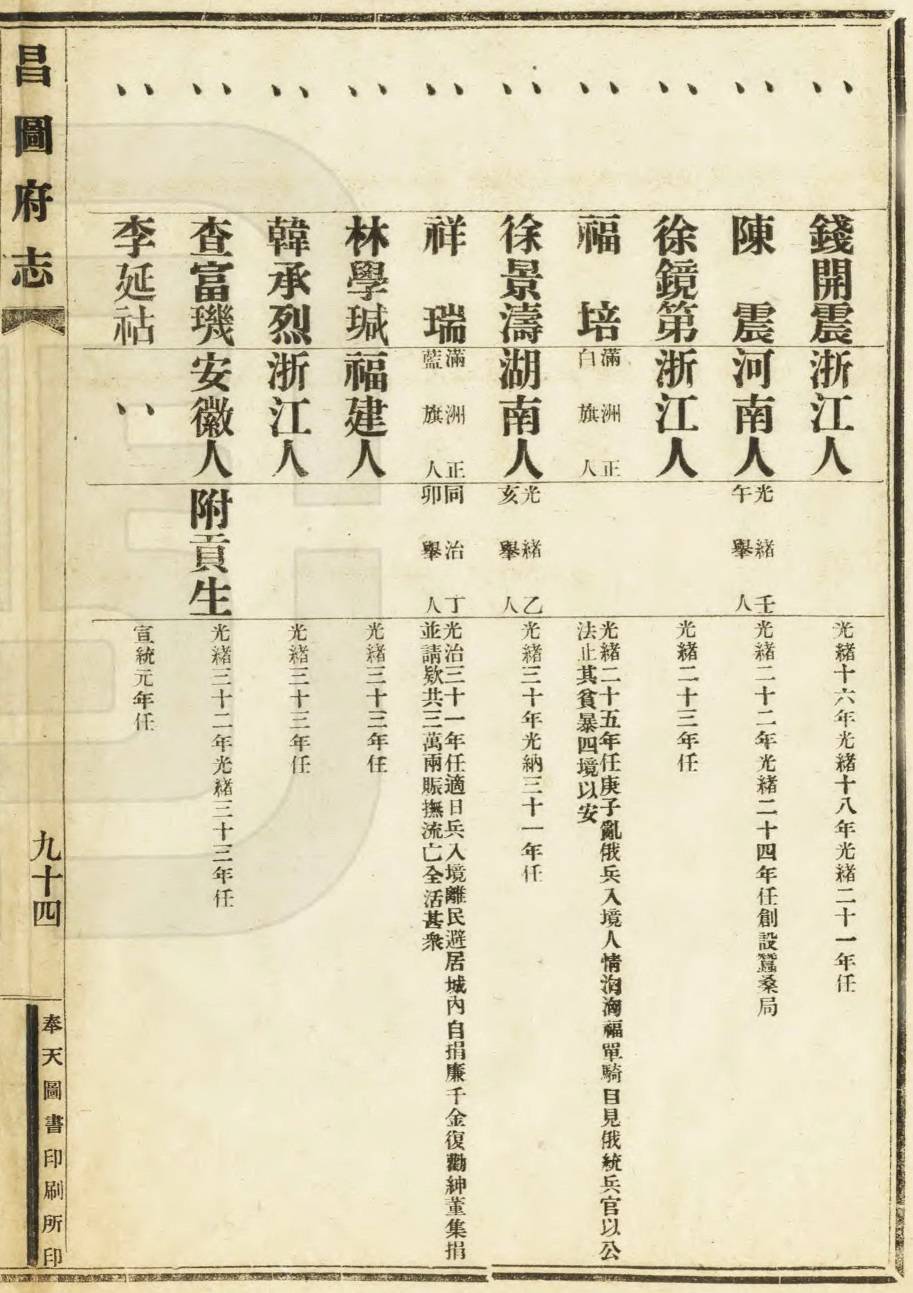 〻 錢開震 浙江人 光緒十六年光緒十八年光緒二十一年任
〻 陳震 河南人 光緒壬午舉人 光緒二十二年光緒二十四年任創設蠶桑局
〻 徐鏡第 浙江人 光緒二十三年任
〻 福培 滿洲正白旗人 光緒二十五年任庚子亂俄兵入境人情洶洶福單騎目見俄統兵官以公法止其貧暴四境以安
〻 徐景濤 湖南人 光緒乙亥舉人 光緒三十年光納三十一年任
〻 祥瑞 滿洲正藍旗人 同治丁卯舉人 光治三十一年任適日兵入境難民避居城內自捐廉千金復勸紳董集捐並請欵共三萬兩賑撫流亡全活甚衆
〻 林學瑊 福建人 光緒三十三年任
〻 韓承烈 浙江人 光緒三十三年任
〻 查富璣 安徽人 附貢生 光緒三十二年光緒三十三年任
李延祜 〻 宣統元年任
昌圖府志
九十四
奉天圖書印刷所印